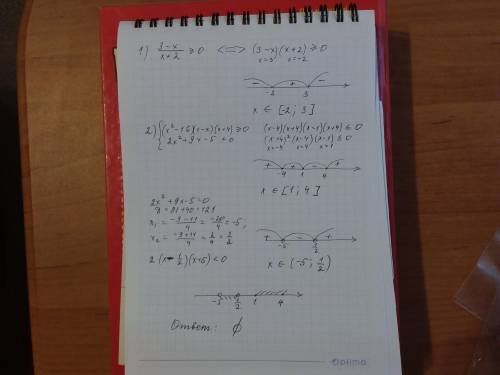 1) (3-x)/(x+2) ≥ 0 <=> (3-x)(x+2) ≥ 0
x=3 x=-2
- + -
-2 3 x
x ∈ [-2; 3]
2) { (x²-16)(1-x)(x+4) ≥ 0
2x²+9x-5 < 0
(x-4)(x+4)(x-1)(x+4) ≤ 0
(x+4)²(x-4)(x-1) ≤ 0
x=-4 x=4 x=1
+ + - +
-4 1 4 x
x ∈ [1; 4]
2x²+9x-5=0
D = 81+40=121
x₁ = (-9-11)/4 = -20/4 = -5;
x₂ = (-9+11)/4 = 2/4 = 1/2
2(x-1/2)(x+5) < 0
+ - +
-5 1/2 x
x ∈ (-5; 1/2)
-5 1/2 1 4
Ответ: ∅
Optima